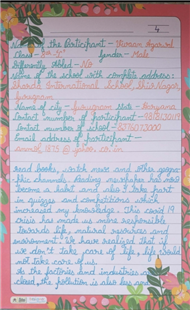 Name of the Participant - Usman Agarwal
Class - Gender - Male
Differently Abled - No
Name of the school with complete address:
Sharda International School,
Gurugram
Name of city - Gurugram, State - Haryana
Contact number of participant -
Contact number of school -
Email address of participant -
read books, watch news and other geogra-
phic channels. Reading now has become
become a habit and also I take part
in quizzes and competitions which
increased my knowledge. This covid 19
crisis has made us more responsible
towards life, natural resources and
environment. We have realized that if
we don't take care of life, life would
not take care of us.
As the factories and industries are
closed, the pollution is also less and